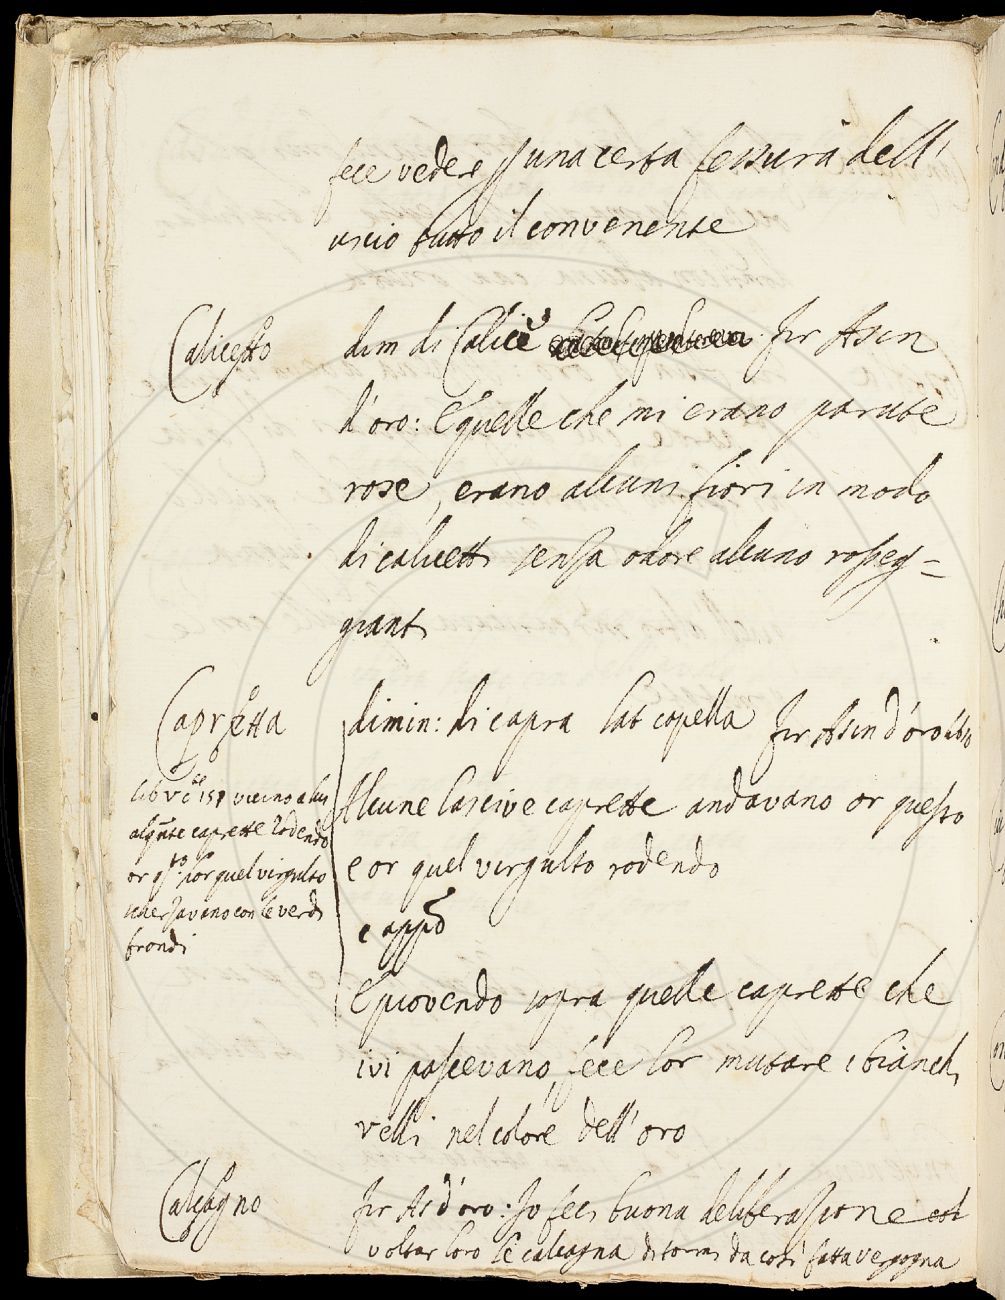 fece vedere p una certa fessura dell'
uscio tutto il convenente
Calicetto
dim di Calice Fir Asin
d'oro: E quelle che mi erano parute
rose, erano alcuni fiori in modo
di calicetti senza odore alcuno rosseg=
gianti
Capretta
dimin: di capra lat capella Fir Asin d'oro
Alcune lascive caprette andavano or questo
e or quel virgulto rodendo
e appo
E piovendo sopra quelle caprette che
ivi pascevano, fece lor mutare i bianchi
velli nel colore dell'oro
vicino a lui
alqnte caprette rodendo
or qto: or quel virgulto
scherzavano con le verdi
frondi
Calcagno
Fir As d'oro: Io feci buona deliberazione
voltar loro le calcagna di tormi da così fatta vergogna